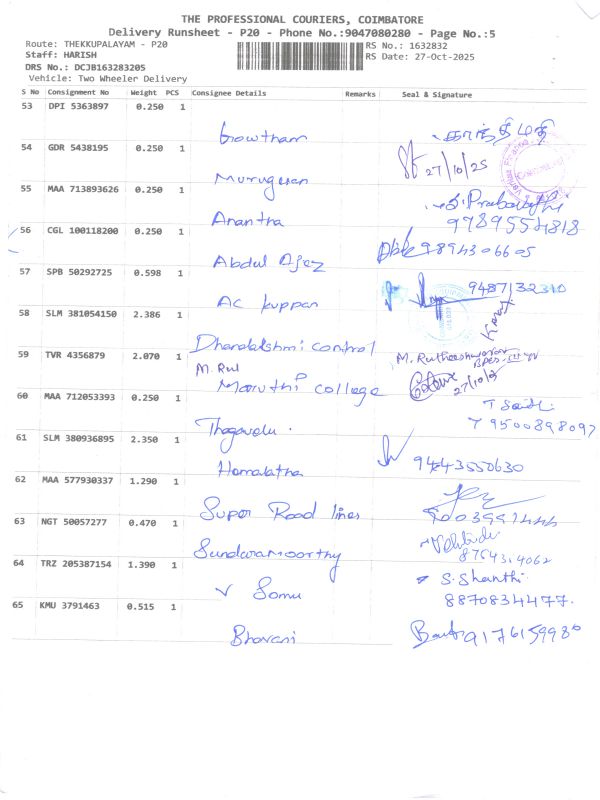 THE PROFESSIONAL COURIERS, COIMBATORE
Delivery Runsheet - P20 - Phone No.:9047080280 - Page No.:5
Route: THEKKUPALAYAM - P20 RS No.: 1632832
Staff: HARISH RS Date: 27-Oct-2025
DRS No.: DCJB163283205
Vehicle: Two Wheeler Delivery
S No Consignment No Weight PCS Consignee Details Remarks Seal & Signature
53 DPI 5363897 0.250 1
Gowtham காந்திமதி
54 GDR 5438195 0.250 1
27/10/25
Murugesan
55 MAA 713893626 0.250 1
Anantha 9789554818
56 CGL 100118200 0.250 1
Abdul Ajez 9894306605
57 SPB 50292725 0.598 1
AC Kuppan 9487132310
58 SLM 381054150 2.386 1
Dhanalakshmi control
59 TVR 4356879 2.070 1 M. Rutheeshwaran
M. Rul
Maruthi college 27/10/25
60 MAA 712053393 0.250 1
Thagavelu. 9500898097
61 SLM 380936895 2.350 1
Hemalatha 9443550630
62 MAA 577930337 1.290 1
Super Road lines
63 NGT 50057277 0.470 1
Sundaramoorthy
64 TRZ 205387154 1.390 1 S. Shanthi
V Somu 8870834477.
65 KMU 3791463 0.515 1
Bhavani 9176159980